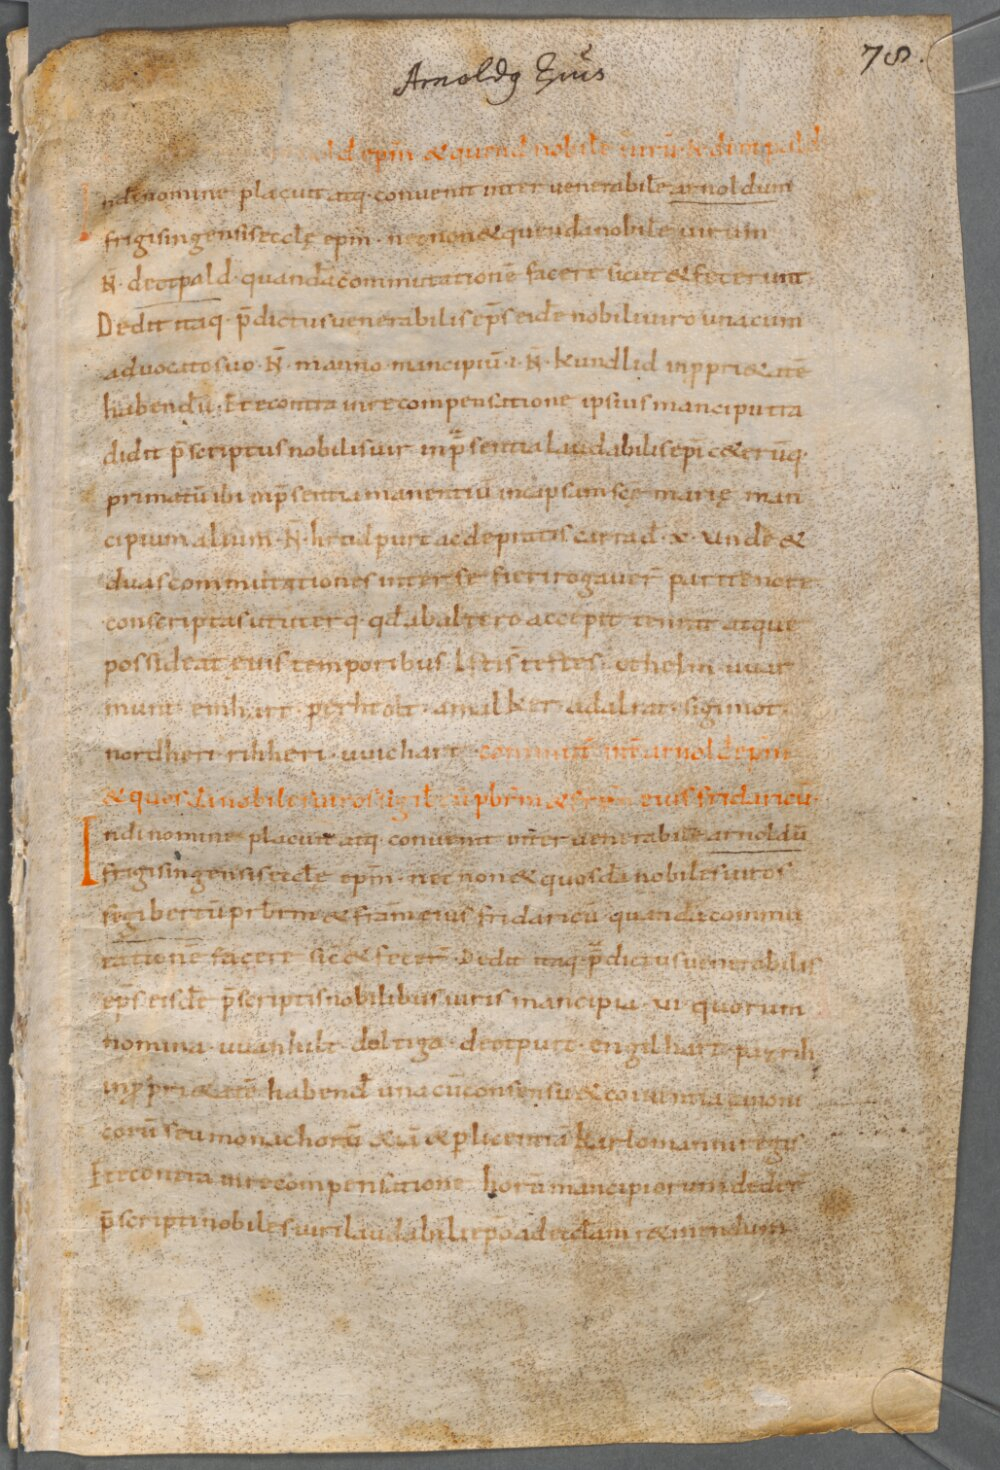 Arnoldꝰ Ep̃us
78.
nold ep̃m & quend nobilẽ uirũ · N deotpald
In dei nomine placuit atq· convenit inter venerabilẽ arnoldum
frigisingensis eccłę ep̃m · nec non & quenda nobilẽ virum
N̄ · deotpald · quandã commutationẽ facere sicut & fecerunt
Dedit itaq· p̃dictus venerabilis ep̃s eidẽ nobili viro una cum
advocato suo · N̄ · manno mancipiũ · i · N̄ · kundlid in p̱pri&atẽ
habendũ · Et econtra in recompensatione ipsius mancipii tra
didit p̃scriptus nobilis vir in p̃sentia Laudabilis ep̃i c&erũq·
primatũ ibi in p̃sentia manentiũ in capsam scę marię man
cipium alium · N̄ · hridpurc ac de pratis carrad · x · unde &
duas commutationes inter se fieri rogaver̃ pari tenore
conscriptas ut uterq· qđ ab altero accepit teneat atque
possideat euis temporibus · Isti s̄ testes · othelm · uuar
munt · einhart · perhtolt · amalker · adalrat · sigimot ·
nordheri · rihheri · uuichart · commut̄ int̄ arnold ep̃m
& quosdã nobiles viros sigib̃tũ pb̃rm & fr̃m eius fridaricũ ·
In dei nomine placuit atq· convenit inter venerabilẽ arnoldũ
frigisingensis eccłę ep̃m · nec non & quosdã nobiles viros
sigibertũ prb̃rm & fratrẽ eius fridaricũ quandã commu
tationẽ facere sic & fecer̃ · Dedit itaq· p̃dictus venerabilis
ep̃s eisdẽ p̃scriptis nobilibus viris mancipia · vi · quorum
nomina · uuanhilt · deltiga · deotpurc · engilhart · patrih
in p̱pri&atẽ habend̃ una cũ consensu & coniventia canoni
corũ seu monachorũ & iã & p̱ licentiã karlomanni regis
Et econtra in recompensatione horũ mancipiorum deder̃
p̃scripti nobiles viri laudabili ep̃o ad eccłam r&inendum